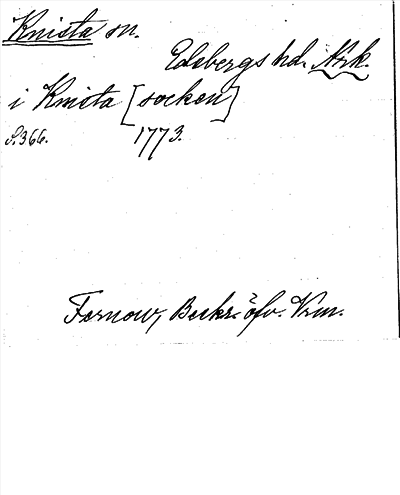 Knista sn.
Edsbergs hd. Nrk.
i Knista [socken]
S. 366. 1773.
Fernow, Beskr. öfv. Vrm.